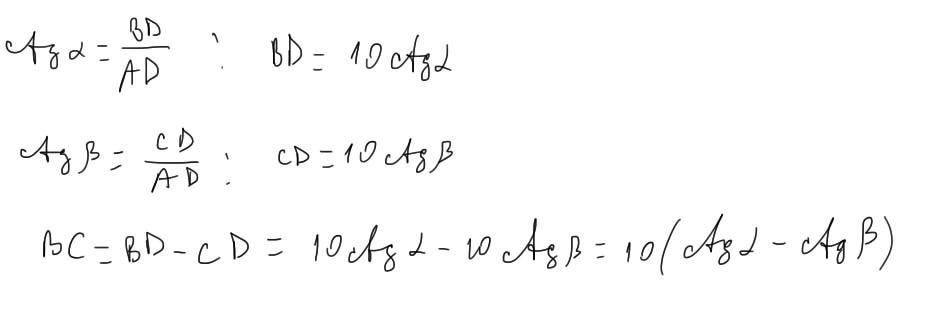 ctg α = BD/AD ; BD = 10 ctg α
ctg β = CD/AD ; CD = 10 ctg β
BC = BD - CD = 10 ctg α - 10 ctg β = 10(ctg α - ctg β)